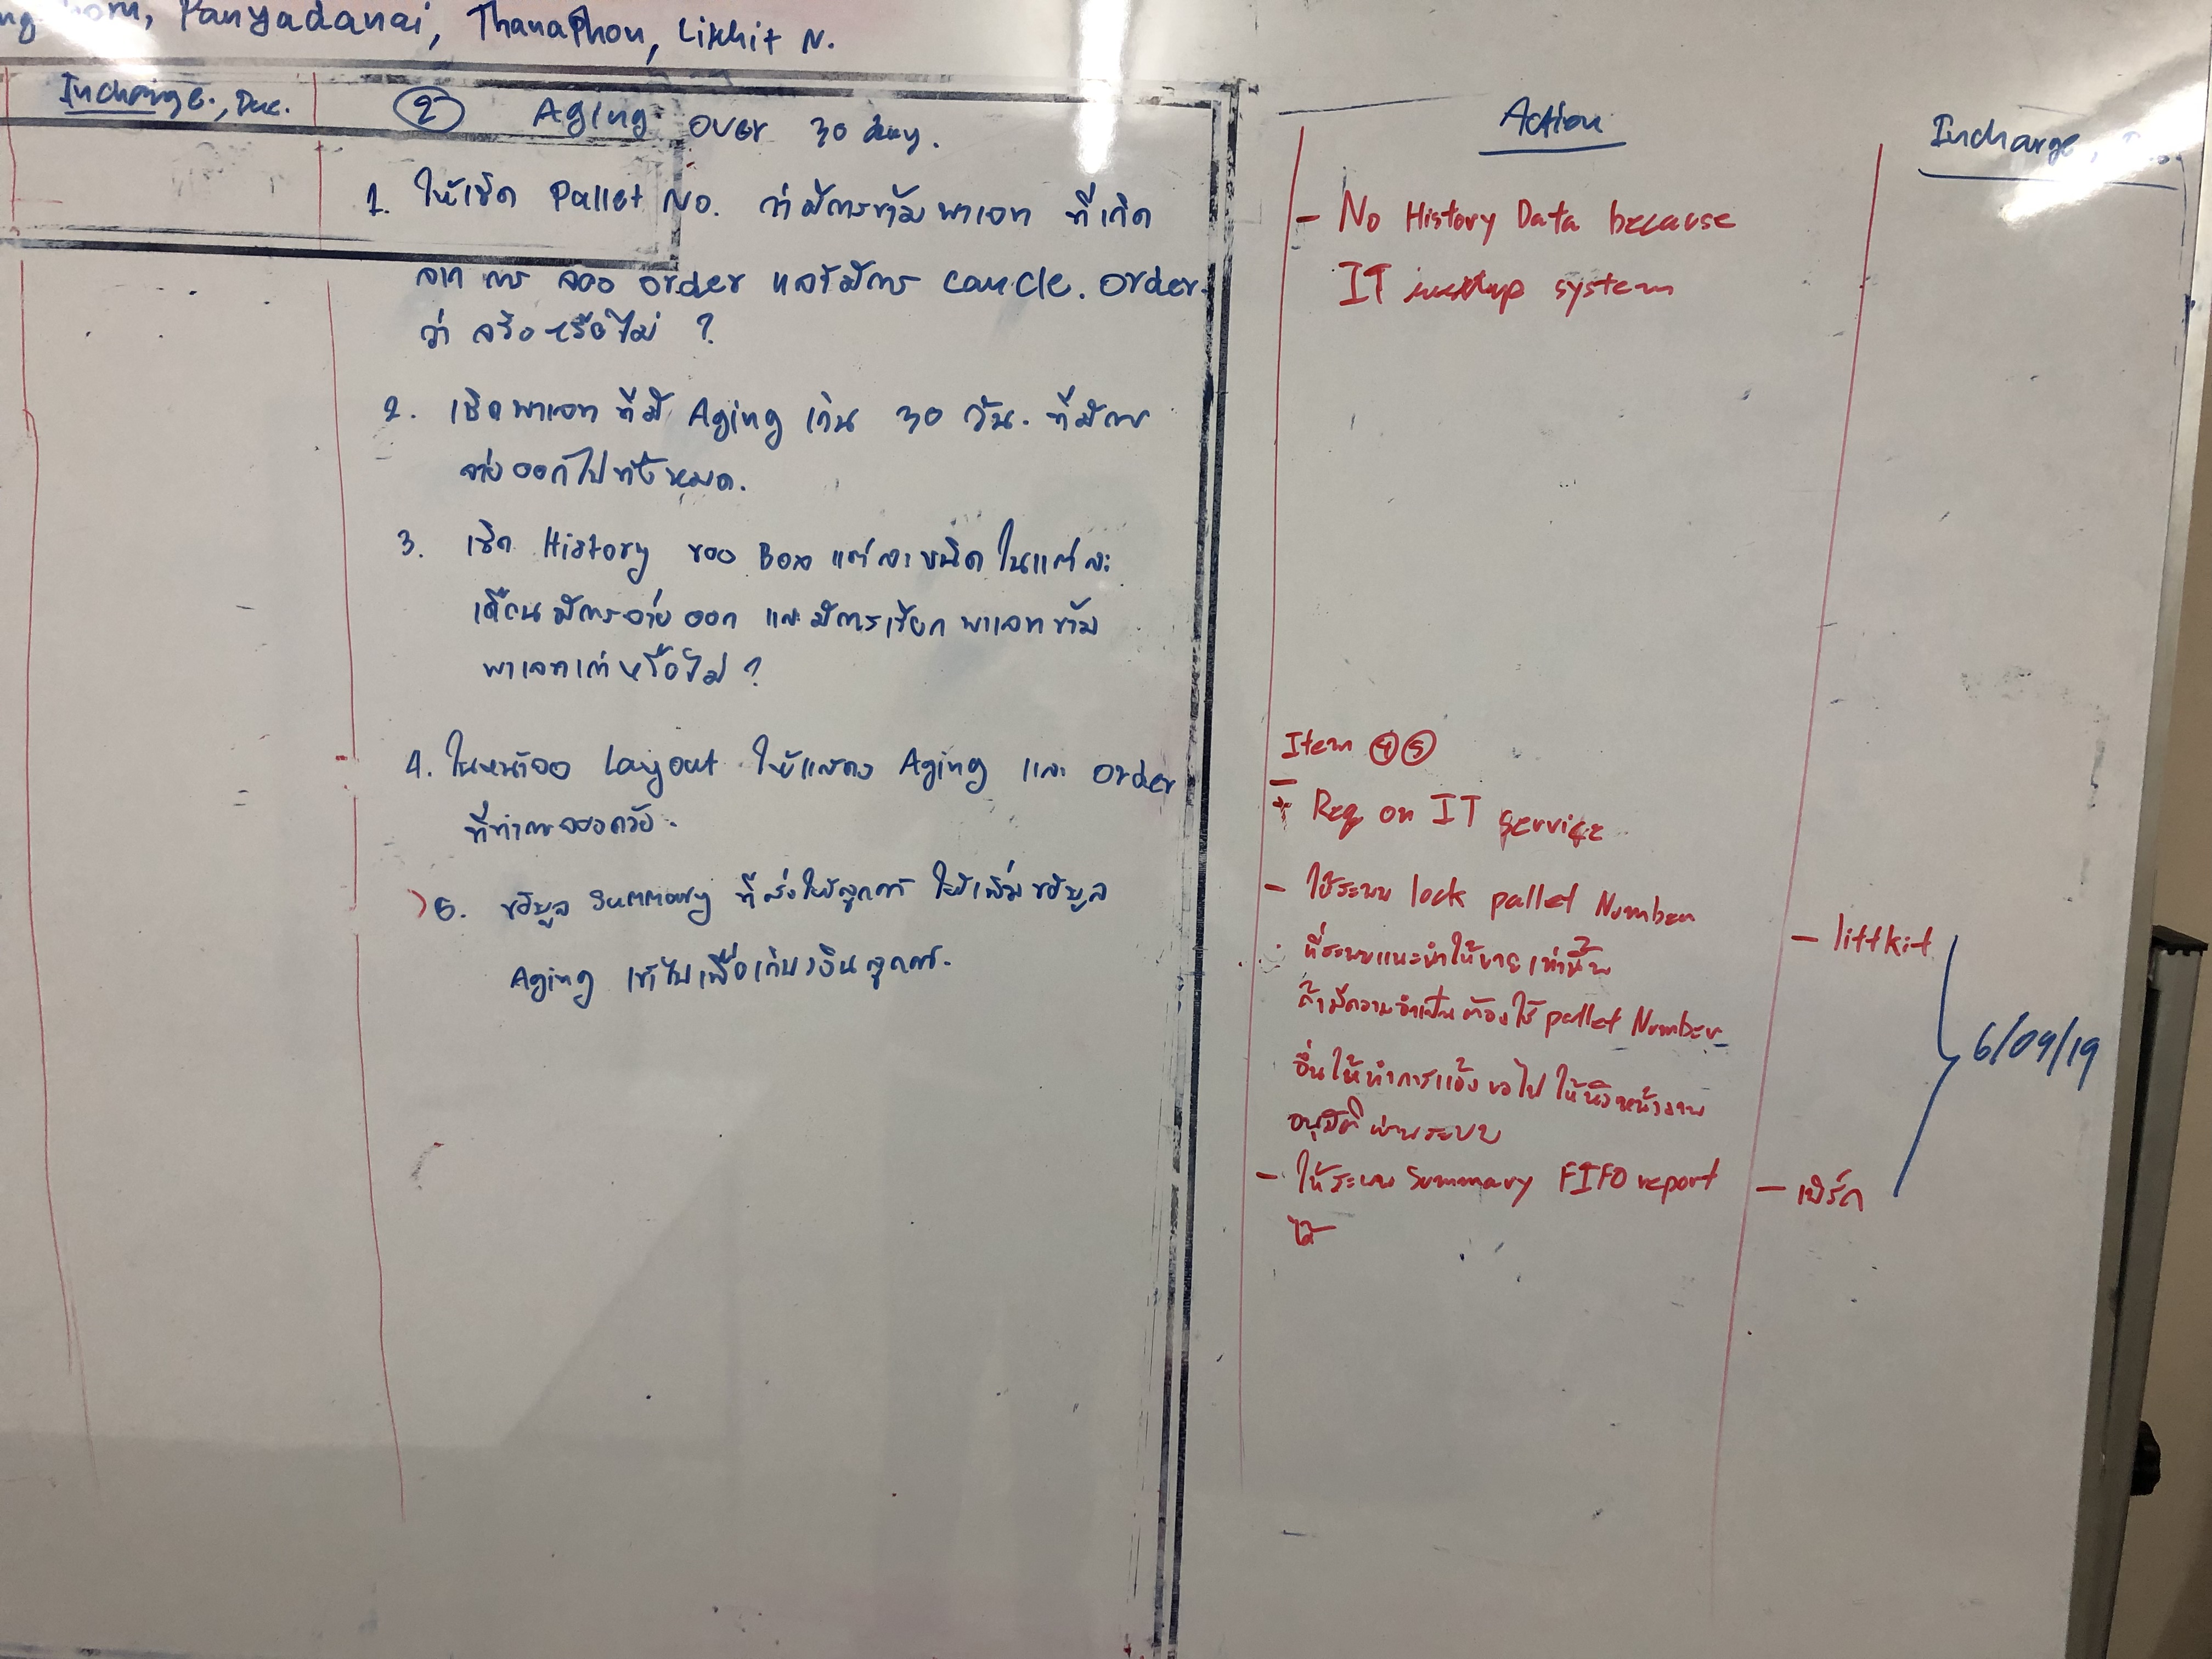 Panyadanai, Thanaphon, Likhit N.
Incharge., Due.
② Aging over 30 day.
1. ให้เช็ค Pallet No. ว่ามีการข้ามพาเลท ที่เกิด
จาก การ จอง order แล้วมีการ cancle. order.
ว่า จริงหรือไม่ ?
2. เช็คพาเลท ที่มี Aging เกิน 30 วัน. ที่มีการ
จ่ายออกไปทั้งหมด.
3. เช็ค History ของ Box แต่ละชนิด ในแต่ละ
เดือนมีการจ่ายออก และมีการเรียกพาเลทข้าม
พาเลทเก่าหรือไม่ ?
4. ในหน้าจอ Layout ให้แสดง Aging และ order
ที่ทำการจองด้วย.
5. ข้อมูล Summary ที่ส่งให้ลูกค้า ให้เพิ่มข้อมูล
Aging เข้าไปเพื่อเก็บเงินลูกค้า.
Action
- No History Data because
IT system
Item ④⑤
Req on IT service
- ใช้ระบบ lock pallet Number
ที่ระบบแนะนำให้ขายเท่านั้น
ถ้ามีความจำเป็นต้องใช้ pallet Number
อื่นให้ทำการแจ้งขอไป ให้หัวหน้างาน
อนุมัติผ่านระบบ
- ให้ระบบ Summary FIFO report
ได้
Incharge,
- littkit
- เบิร์ด
6/09/19